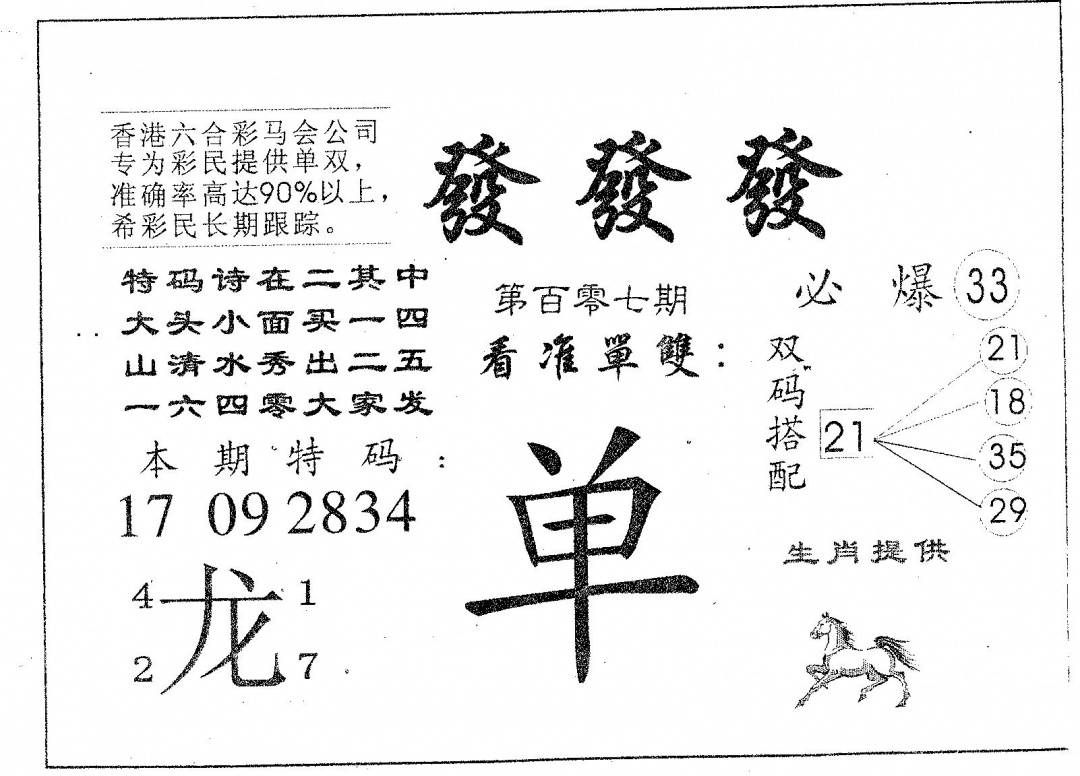 香港六合彩马会公司
专为彩民提供单双，
准确率高达90%以上，
希彩民长期跟踪。
發 發 發
特码诗在二其中
大头小面买一四
山清水秀出二五
一六四零大家发
第百零七期
看准單雙：
必 爆 33
双码搭配
21
21
18
35
29
本期特码：
17 09 2834
单
4 龙 1
2 7
生肖提供